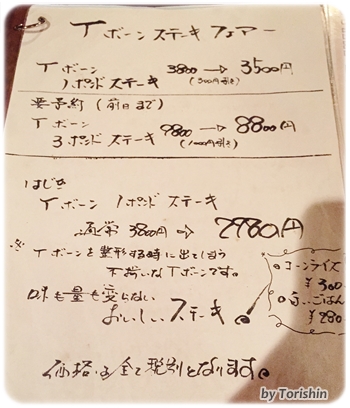 Tボーンステーキ フェアー
Tボーン
1ポンドステーキ 3800→3500円
(300円引き)
要予約(前日まで)
Tボーン
3ポンドステーキ 9800→8800円
(1000円引き)
はじき
Tボーン 1ポンドステーキ
通常3800円→2980円
※Tボーンを整形する時に出てしまう
不揃いなTボーンです。
味も量も変らない
おいしいステーキ
コーンライス
¥300
ごはん
¥280
価格は全て税別となります。
by Torishin